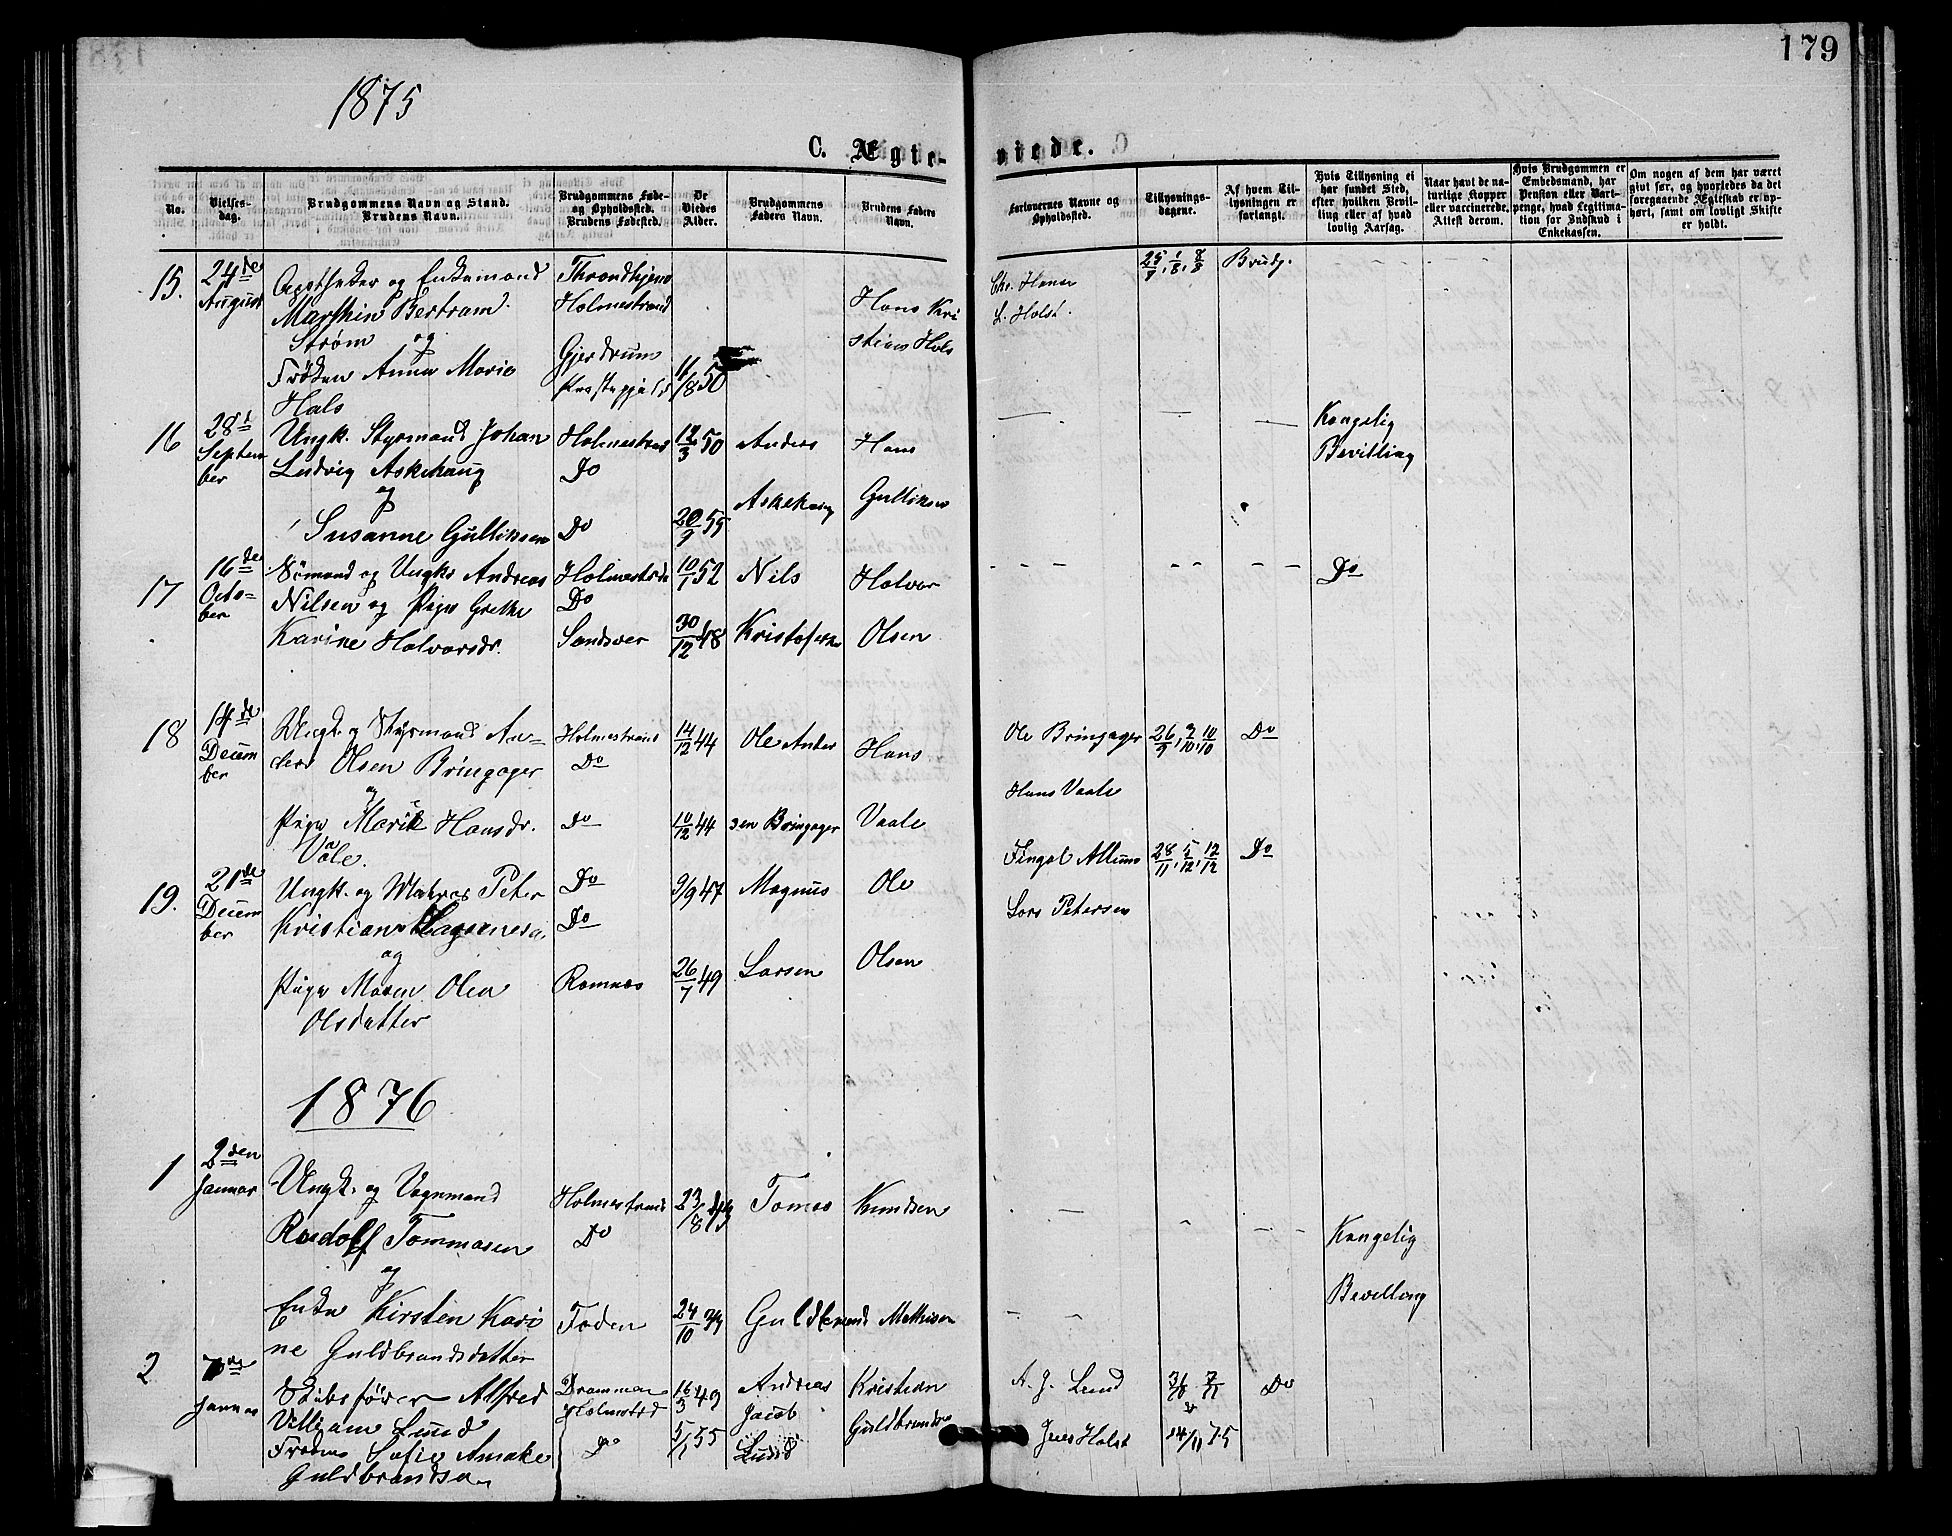 179
1875
C. Ægte-
viede.
No.
Vielses-
dag.
Brudgommens Navn og Stand.
Brudens Navn.
Brudgommens Føde-
og Opholdssted.
Brudens Fødested.
De
Viedes
Alder.
Brudgommens
Faders Navn.
Brudens Faders
Navn.
Forlovernes Navne og
Opholdssted.
Tillysnings-
dagene.
Af hvem Til-
lysningen er
forlangt.
Hvis Tillysning ei
har fundet Sted,
efter hvilken Bevil-
ling eller af hvad
lovlig Aarsag.
Naar havt de na-
turlige Kopper
eller vaccinerede.
Attest derom.
Hvis Brudgommen er
Embedsmand, har
Pension eller Vart-
penge, hvad Legitima-
tion for Indskud i
Enkekassen.
Om nogen af dem har været
givt før, og hvorledes da det
foregaaende Ægteskab er op-
hørt, samt om lovligt Skifte
er holdt.
15. 24de August
Apotheker og Enkemand
Marthin Bertram
Strøm og
Frøken Anna Marie
Hals
Throndhjem
Holmestrand
Gjerdrum
11/8 50
Hans Kri
stian Hals
Chr. Hansen
L. Holst.
25/7, 1/8, 8/8
Brudg.
16 28d Septem
ber
Ungk. Styrmand Johan
Ludvig Askehaug
og
Susanne Gulliksen
Holmestrand
Do
Do
12/3 50
20/9 55
Anders
Askehaug
Hans
Gulliksen
Kongelig
Bevilling
17 16de Octo-
ber
Sømand og Ungk. Andreas
Nilsen og Pige Grethe
Karine Halvorsdr.
Holmestrd
Do
Sandsvær
10/1 52
30/12 48
Nils
Kristofersen
Halvor
Olsen
Do
18 14de Decem
ber
Ungk. og Styrmand An-
ders Olsen Bringager
og
Pige Marie Hansdr.
Våle.
Holmestrand
Do
Do
14/12 44
10/12 44
Ole Ander
sen Bringager
Hans
Vaale
Ole Bringager
Hans Vaale
26/9, 3/10, 10/10
Do
19. 21de Decem
ber
Ungk. og Matros Peter
Kristian
og
Pige Maren Olea
Olsdatter
Do
Do
Ramnæs
9/9 47
26/7 49
Magnus
Larsen
Ole
Olsen
Fingal Allum
Lars Petersen
28/11, 5/12, 12/12
Do
1876
1 2den
Januar
Ungk. og Vognmand
Rudolf Tommasen
og
Enke Kirsten Kari
ne Guldbrandsdatter
Holmestrand
Do
Foden
23/8
24/10
Tomas
Knudsen
Guldbrand Mathisen
Kongelig
Bevilling
2 7de
Januar
Skibsfører Alfred
Villiam Lund
Frøken Sofie Amalie
Guldbrandsen
Drammen
Holmestrd
Do
16/3 49
5/1 55
Andreas
Jacob
Lund
Kristian
Guldbrandsen
A. J. Lund
Jens Holst
31/10 7/11
14/11 75
Do